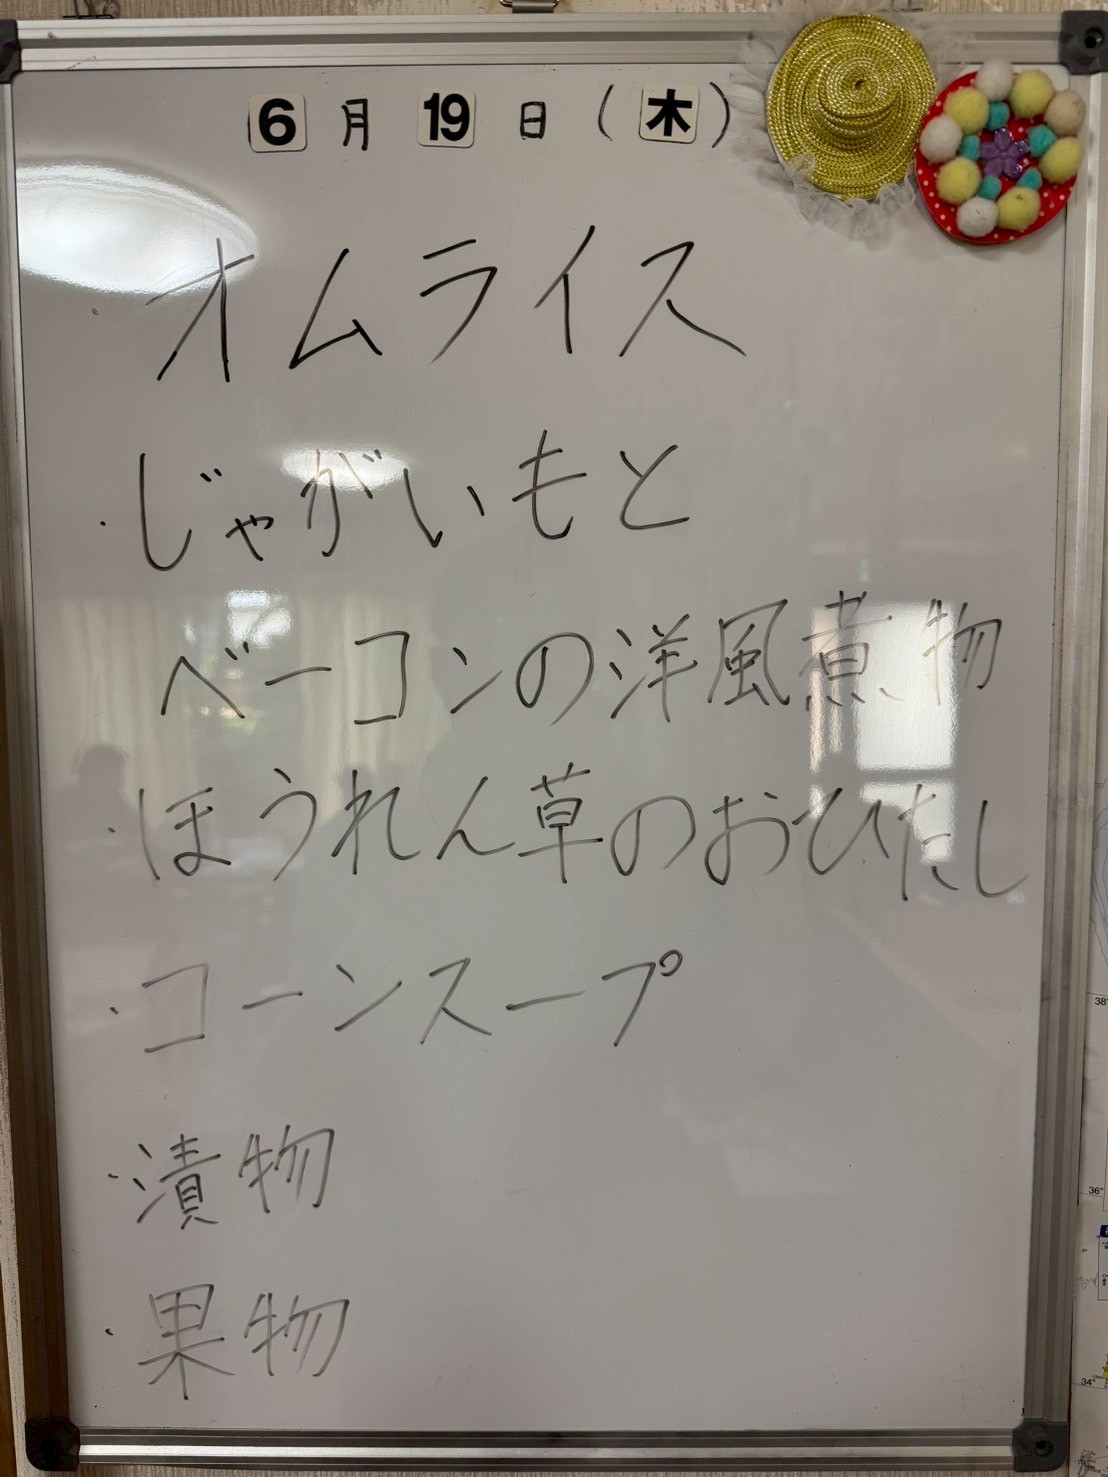 6月19日(木)
・オムライス
・じゃがいもと
ベーコンの洋風煮物
・ほうれん草のおひたし
・コーンスープ
・漬物
・果物
38°
36°
34°